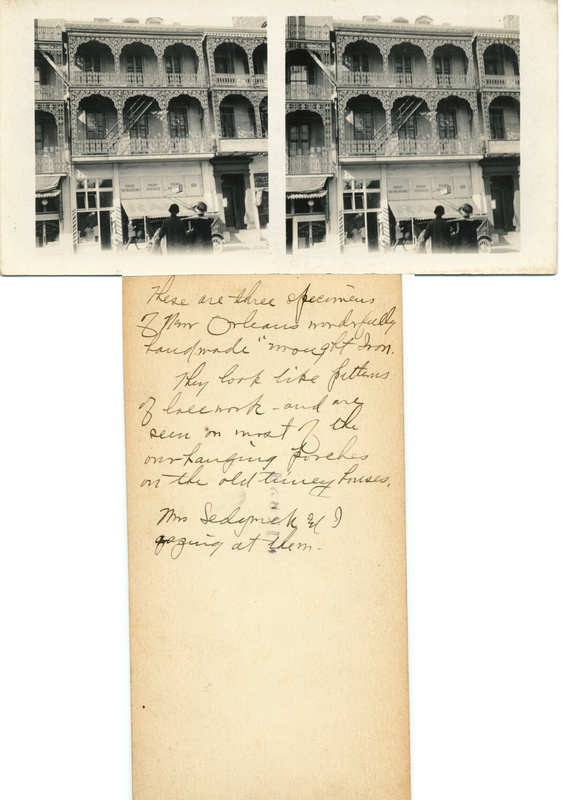 These are three specimens
of New Orleans wonderfully
handmade "wrought" Iron.
They look like patterns
of lacework - and are
seen on most of the
over-hanging porches
on the old timey houses.
Mrs Sedgwick & I
gazing at them -